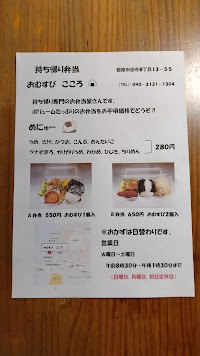 持ち帰り弁当
おむすび こころ
(TEL) 090-3131-1304
持ち帰り専門のお弁当屋さんです。
ボリュームたっぷりのお弁当をお手頃価格でどうぞ!!
めにゅー
うめ、さけ、かつお、こんぶ、めんたいこ
ツナマヨネーズ、
わかめ、ひじき、ちりめん
280円
A弁当 550円 おむすび1個入
B弁当 650円 おむすび2個入
※おかずは日替わりです。
営業日
火曜日~土曜日
午前8時30分~午後1時30分まで
(日曜日、月曜日、祝日定休日)